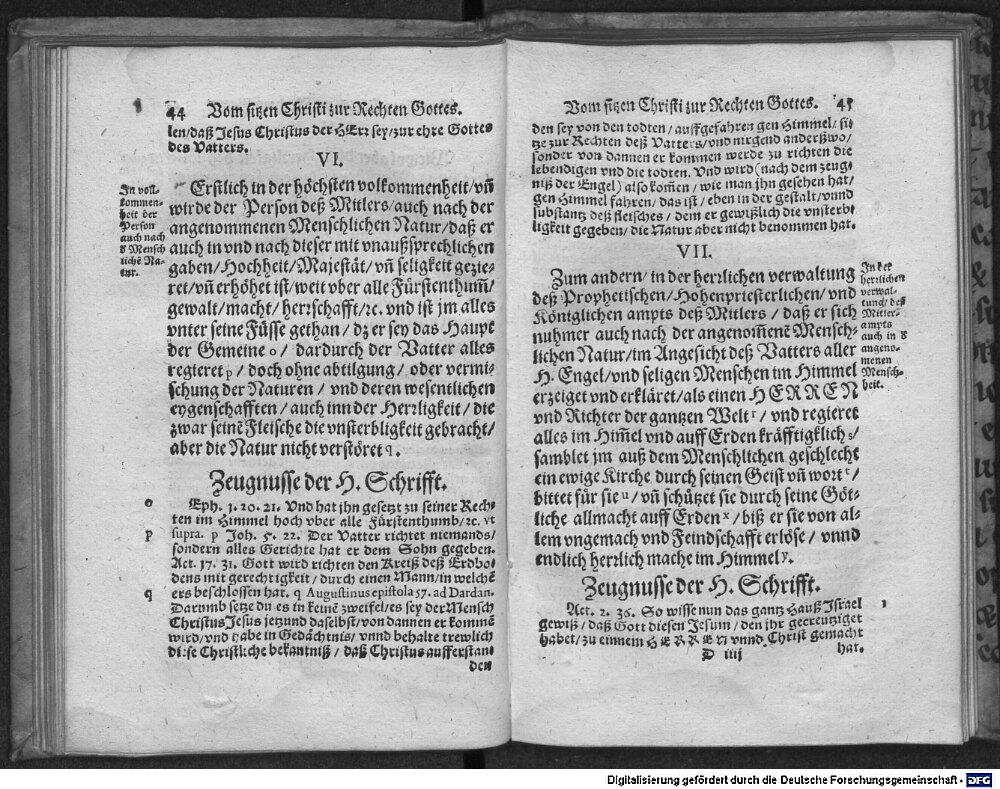 44 Vom sitzen Christi zur Rechten Gottes.
len/daß Jesus Christus der HErr sey/zur ehre Gottes
des Vatters.
VI.
In voll-
kommen-
heit der
Person
auch nach
d Mensch
lichē Na-
tur.
Erstlich in der höchsten volkommenheit/vn̄
wirde der Person deß Mitlers/auch nach der
angenommenen Menschlichen Natur/daß er
auch in vnd nach dieser mit vnaußsprechlichen
gaben/Hochheit/Majestät/vn̄ seligkeit gezie-
ret/vn̄ erhöhet ist/weit vber alle Fürstenthum̄/
gewalt/macht/herrschafft/ꝛc. vnd ist jm alles
vnter seine Füsse gethan/dz er sey das Haupt
der Gemeine o/ dardurch der Vatter alles
regieret p/ doch ohne abtilgung/ oder vermi-
schung der Naturen/ vnd deren wesentlichen
eygenschafften/auch inn der Herrligkeit/die
zwar seinē Fleische die vnsterbligkeit gebracht/
aber die Natur nicht verstöret q.
Zeugnusse der H. Schrifft.
o Eph. 1. 20. 21. Vnd hat jhn gesetzt zu seiner Rech-
ten im Himmel hoch vber alle Fürstenthumb/ꝛc. vt
p supra. p Joh. 5. 22. Der Vatter richtet niemands/
sondern alles Gerichte hat er dem Sohn gegeben.
Act. 17. 31. Gott wird richten den Kreiß deß Erdbo-
dens mit gerechtigkeit/durch einen Mann/in welchē
q ers beschlossen hat. q Augustinus epistola 57. ad Dardan.
Darumb setze du es in keinē zweifel/es sey der Mensch
Christus Jesus jetzund daselbst/von dannen er kommē
wird/vnd habe in Gedächtnis/vnnd behalte trewlich
diese Christliche bekantniß/ daß Christus aufferstan-
den
Vom sitzen Christi zur Rechten Gottes. 45
den sey von den todten/auffgefahren gen Himmel/ si-
tze zur Rechten deß Vatters/vnd nirgend anderßwo/
sonder von dannen er kommen werde zu richten die
lebendigen vnd die todten. Vnd wird (nach dem zeug-
niß der Engel) also kom̄en/wie man jhn gesehen hat/
gen Himmel fahren/das ist/eben in der gestalt/vnnd
substantz deß fleisches/ dem er gewißlich die vnsterb-
ligkeit gegeben/die Natur aber nicht benommen hat.
VII.
Zum andern/in der herrlichen verwaltung
deß Prophetischen/Hohenpriesterlichen/vnd
Königlichen ampts deß Mitlers/ daß er sich
nuhmer auch nach der angenom̄enē Mensch-
lichen Natur/im Angesicht deß Vatters aller
H. Engel/vnd seligen Menschen im Himmel
erzeiget vnd erkläret/als einen HERREN
vnd Richter der gantzen Welt r/ vnd regieret
alles im Him̄el vnd auff Erden kräfftigklich s/
samblet jm auß dem Menschlichen geschlecht
ein ewige Kirche durch seinen Geist vn̄ wort t/
bittet für sie u/ vn̄ schützet sie durch seine Göt-
liche allmacht auff Erden x/ biß er sie von al-
lem vngemach vnd Feindschafft erlöse/ vnnd
endlich herrlich mache im Himmel y.
In der
herrlichen
verwal-
tung/deß
Mitler-
ampts
auch in d
angeno-
menen
Mensch-
heit.
Zeugnusse der H. Schrifft.
Act. 2. 36. So wisse nun das gantz Hauß Israel
gewiß/ daß Gott diesen Jesum/den jhr gecreutziget
habet/zu einnem HERREN vnnd Christ gemacht
D iiij hat.
Digitalisierung gefördert durch die Deutsche Forschungsgemeinschaft - DFG